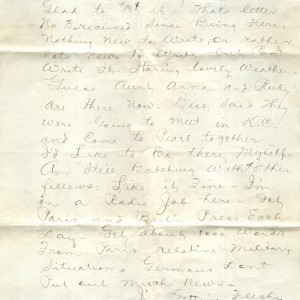 Glad to get it. Thats letter
No 3 received since being here.
Nothing new to write, or rather
lots news to write but can't
write it. Having lovely weather.
Guess Aunt Anna and Ruby
are there now. Bess said they
were going to meet in K.C.
and come to Pearl together
I'd like to be there myself.
Am still batching with other
fellows. Like it fine - I'm
on a radio job here - Get
Paris and Berlin Press each
day - Get about 1000 words
from Paris relating Military
situation. Germans don't
put out much news -
getting fleshy